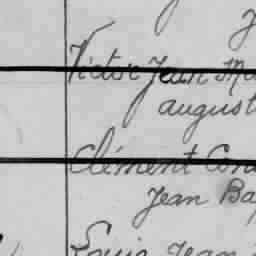 Victor Jean Ma
august
Clément Cons
Jean Ba
Louis Jean